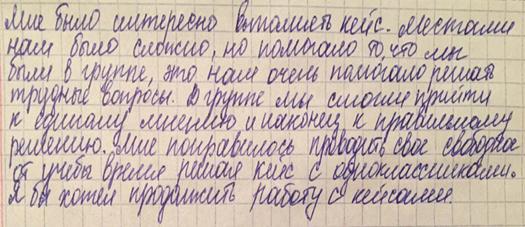 Мне было интересно выполнять кейс. Местами
нам было сложно, но помогало то, что мы
были в группе, это нам очень помогало решать
трудные вопросы. В группе мы смогли прийти
к единому мнению и наконец к правильному
решению. Мне понравилось проводить свое свободное
от учебы время решая кейс с одноклассниками.
Я бы хотел продолжить работу с кейсами.